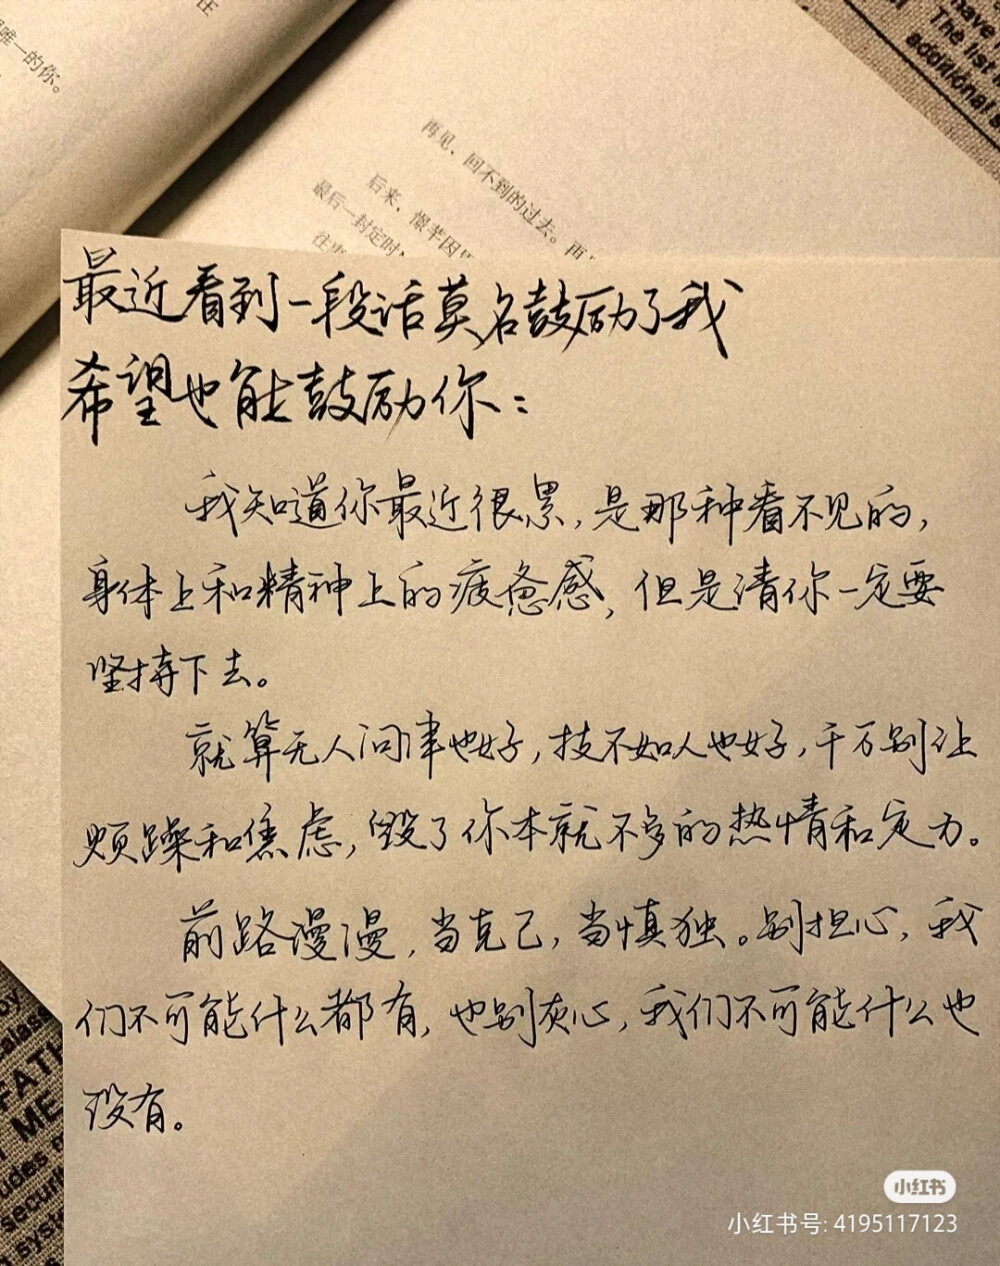 在
唯一的你。
have
The list
additional
再见，回不到的过去。再
后来，
最后一封定时
最近看到一段话莫名鼓励了我
希望也能鼓励你：
我知道你最近很累，是那种看不见的，
身体上和精神上的疲惫感，但是请你一定要
坚持下去。
就算无人问津也好，技不如人也好，千万别让
烦躁和焦虑，毁了你本就不多的热情和定力。
前路漫漫，当克己，当慎独。别担心，我
们不可能什么都有，也别灰心，我们不可能什么也
没有。
by
FATH
ME
udes
secur
syst
小红书
小红书号: 4195117123